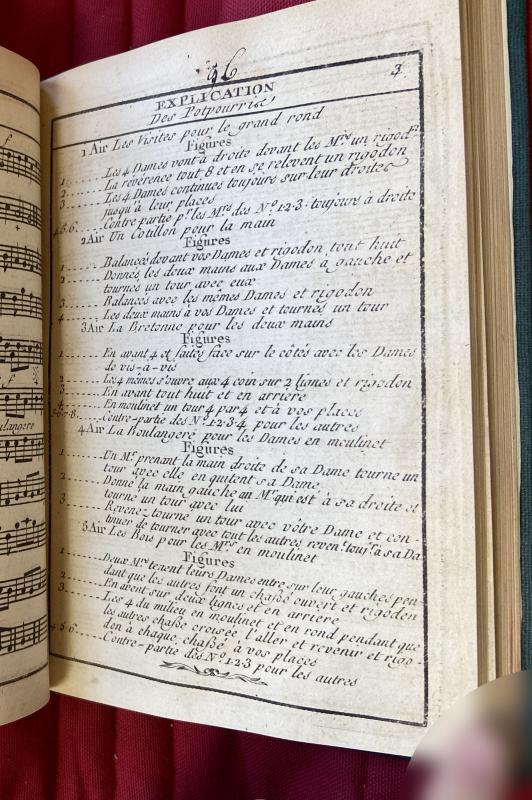 46
3
EXPLICATION
Des Potpourris
1 Air Les Visites pour le grand rond
Figures
1......Les 4 Dames vont à droite devant les Mrs un rigodn
2......La réverence tout 8 et en se relevent un rigodon
3......Les 4 Dames continues toujours sur leur droites
jusqu'à leur places
4.5.6......Contre-partie pr les Mrs des No 1.2.3. toujours à droite
2 Air Un Cotillon pour la main
Figures
1......Balancés devant vos Dames et rigodon tout huit
2......Donnés les deux mains aux Dames à gauche et
tournés un tour avec eux
3......Balancés avec les mêmes Dames et rigodon
4......Les deux mains à vos Dames et tournés un tour
3 Air La Bretonne pour les deux mains
Figures
1......En avant 4 et faites face sur le côtés avec les Dames
de vis-a-vis
2......Les 4 mêmes s'ouvre aux 4 coin sur 2 lignes et rigodon
3......En avant tout huit et en arriere
4......En moulinet un tour 4 par 4 et à vos places
5.6.7.8......Contre-partie des No 1.2.3.4. pour les autres
4 Air La Boulangere pour les Dames en moulinet
Figures
1......Un Mr prenant la main droite de sa Dame tourne un
tour avec elle en quitent sa Dame
2......Donne la main gauche au Mr qui est à sa droite et
tourne un tour avec lui
3......Revenez tourné un tour avec vôtre Dame et con-
tinuer de tourner avec tout les autres reven. toujrs à sa Da.
5 Air Les Bois pour les Mrs en moulinet
Figures
1......Deux Mrs tenent leurs Dames entre sur leur gauches pen-
dant que les autres font un chaßé ouvert et rigodon
2......En avent sur deux lignes et en arriere
3......Les 4 du milieu en moulinet et en rond pendant que
les autres chaßé croisée l'aller et revenir et rigo-
don à chaque chaßé à vos places
4.5.6......Contre-partie des No 1.2.3 pour les autres